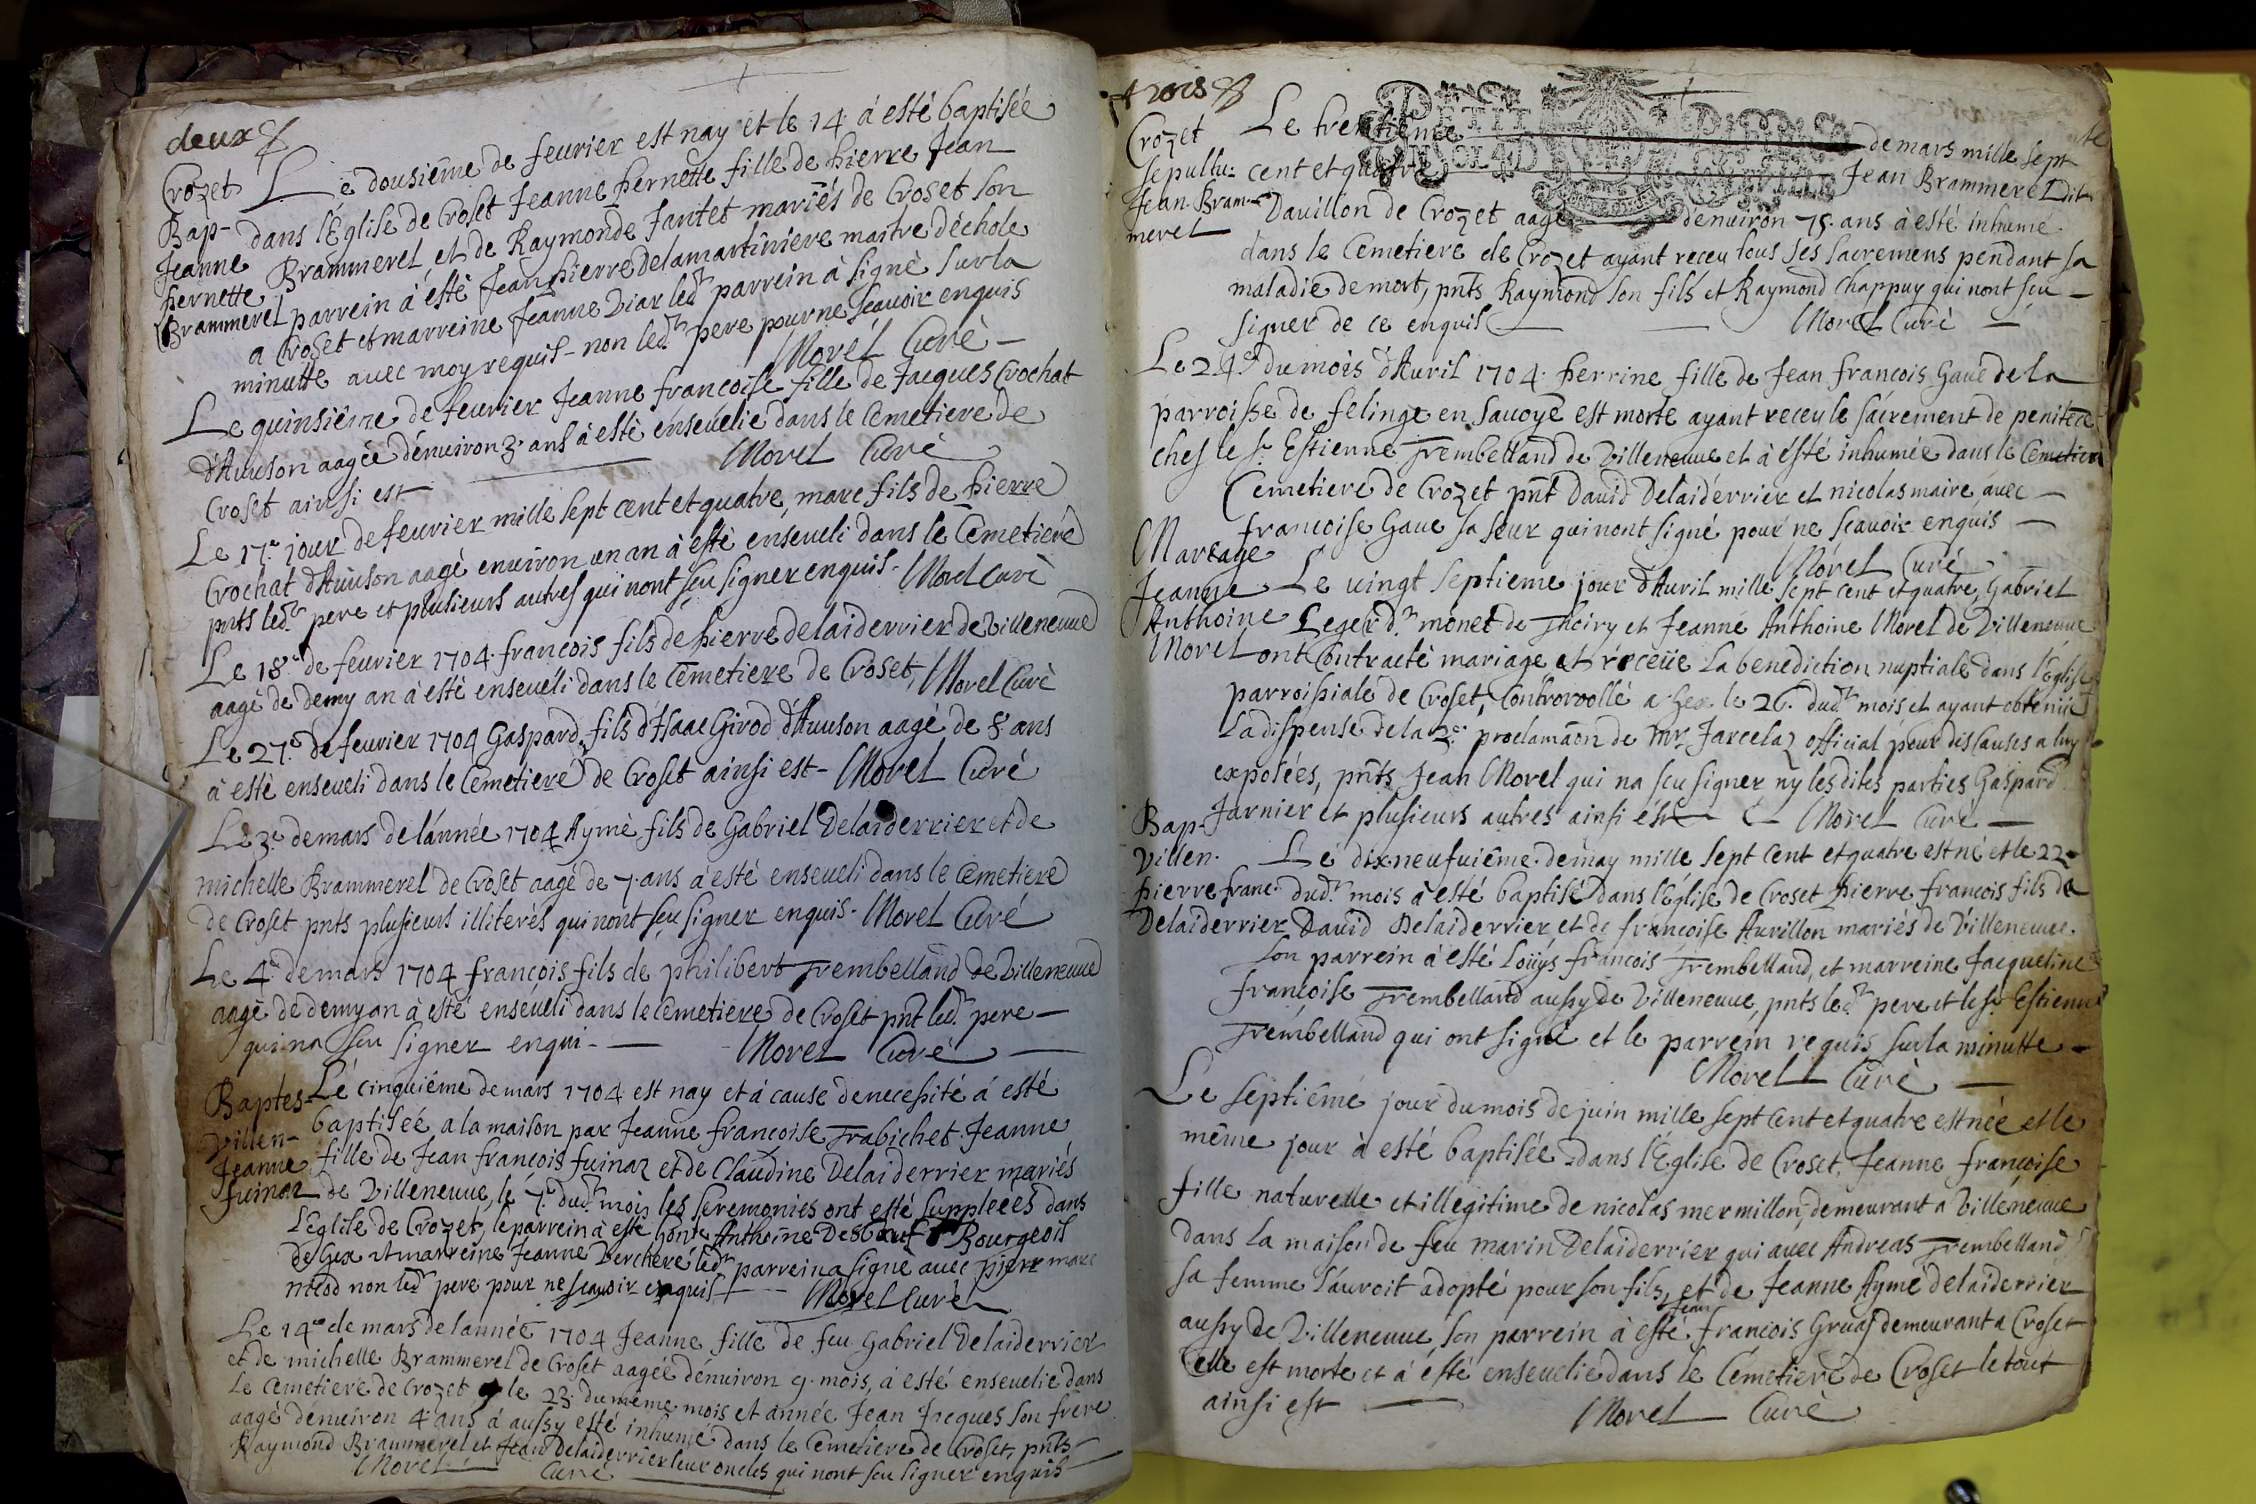 deux
Crozet
Bap-
Jeanne
pernette
Brammerel
Le dousiême de feurier est nay et le 14 à esté baptisée
dans l'Église de Croset Jeanne pernette fille de pierre Jean
Brammerel et de Raymonde Jantet mariés de Croset son
parrein à esté Jean pierre delamartiniere maitre déchole
a Croset et marreine Jeanne Diar led.t parrein à signé sur la
minutte avec moy requis - non led.t pere pour ne scavoir enquis
Morel Curé
Le quinsiême de feurier Jeanne francoise fille de Jacques Crochat
d'Auuson aagée dénuiron 3. ans à esté enséuelie dans le Cemetiere de
Croset ainsi est Morel Curé
Le 17.e jour de feurier mille sept cent et quatre, marc fils de pierre
Crochat d'Auuson aagé enuiron un an à esté enséueli dans le Cemetiere
pnts led.t pere et plusieurs autres qui nont sçu signer enquis. Morel Curé
Le 18.e de feurier 1704. francois fils de pierre delaiderrier de Villeneuue
aagé de demy an à esté enseuéli dans le Cemetiere de Croset, Morel Curé
Le 27.e de feurier 1704 Gaspard, fils d'Isaac Girod d'Auuson aagé de 8. ans
à esté enseueli dans le Cemetiere de Croset ainsi est - Morel Curé
Le 3.e de mars de l'année 1704 Aymé fils de Gabriel Delaiderrier et de
michelle Brammerel de Croset aagé de 7. ans à esté enseueli dans le Cemetiere
de Croset pnts plusieurs illiterés qui nont sçu signer enquis. Morel Curé
Le 4.e de mars 1704 françois fils de philibert Trembelland de Villeneuue
aagé de demy an à esté enséueli dans le Cemetiere de Croset pnt led.t pere
qui na sçu signer enqui- Morel Curé
Baptes-
Villen-
Jeanne
fuinaz
Le cinquiême de mars 1704 est nay et à cause de necessité à esté
baptisée a la maison par Jeanne francoise Trabichet. Jeanne
fille de Jean françois fuinaz et de Claudine Delaiderrier mariés
de Villeneuue, le 7.e dud.t mois les seremonies ont esté suppleées dans
L'eglise de Crozet, le parrein à esté Anthoine Bourgeois
de Gex et marreine Jeanne Verchere led.t parrein a signé avec pierre marc
non led.t pere pour ne scavoir enquis Morel Curé
Le 14.e de mars de lannée 1704 Jeanne fille de feu Gabriel Delaiderrier
et de michelle Brammerel de Croset aagée dénuiron 9. mois, à esté enseuelie dans
Le Cemetiere de Crozet le 23 du méme mois et année Jean Jacques son frere
aagé dénuiron 4 ans à aussy esté inhumé dans le Cemetiere de Croset, pnts
Raymond Brammerel et Jean Delaiderrier leur oncles qui nont sçu signer enquis
Morel Curé
trois
Crozet
sepultu-
Jean Bram-
merel
Le trentiême de mars mille sept
cent et quatre Jean Brammerel dit
Dauillon de Crozet aagé denuiron 75. ans à esté inhumé
dans le Cemetiere de Crozet ayant receu tous ses sacremens pendant sa
maladie de mort, pnts Raymond son fils et Raymond Chappuy qui nont sçu
signer de ce enquis Morel Curé
Le 24.e du mois d'Auril 1704. perrine fille de Jean francois Gaue de la
parroisse de felinge en Sauoye est morte ayant receu le sacrement de penitece
ches le s.r Estienne Trembelland de Villeneuue et à esté inhumée dans le Cemetiere
Cemetiere de Crozet pnt Dauid Delaiderrier et nicolas maire, avec
francoise Gaue sa seur qui nont signé pour ne scavoir enquis
Morel Curé
Mareage
Jeanne
Anthoine
Morel
Le vingt septieme jour d'Auril mille sept cent et quatre, Gabriel
Leger d.t monet de Thoiry et Jeanne Anthoine Morel de Villeneuue
ont Contracté mariage et receüe La benediction nuptiale dans l'Eglise
parroissiale de Croset, Controrollé a Gex le 26. dud.t mois et ayant obtenüe
La dispense de la 2.e proclamãon de Mr. Jarcelaz official pour des Causes a luy
exposées, pnts Jean Morel qui na sçu signer ny les dites parties Gaspard
Jarnier et plusieurs autres ainsi est Morel Curé
Bap-
Villen.
pierre franc.
Delaiderrier
Le dix neufuiême de may mille sept cent et quatre est né et le 22
dud.t mois à esté baptisé dans l'église de Croset pierre francois fils de
Dauid Delaiderrier et de françoise Aurillon mariés de Villeneuue
son parrein à esté Loüys francois Trembelland, et marreine Jacqueline
françoise Trembelland aussy de Villeneuue, pnts led.t pere et le s.r Estienne
Trembelland qui ont signé et le parrein requis sur la minutte
Morel Curé
Le septiême jour du mois de juin mille sept cent et quatre est née et le
même jour à esté baptisée dans l'Église de Croset, Jeanne françoise
fille naturelle et illegitime de nicolas mermillon, demeurant a Villeneuue
dans La maison de feu marin Delaiderrier qui avec Andreas Trembelland
sa femme L'auroit adopté pour son fils, et de Jeanne Aymé delaiderrier
aussy de Villeneuue son parrein à esté Jean françois Gruas demeurant a Croset
Celle est morte et à ésté enseuelie dans le Cémetiere de Croset le tout
ainsi est Morel Curé